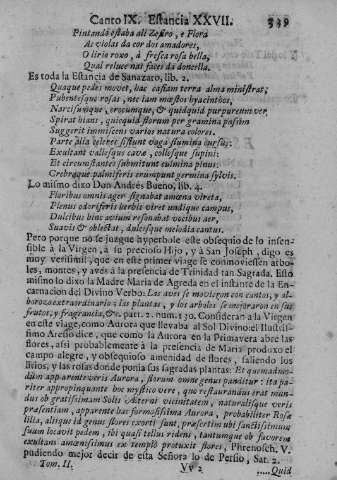 Canto IX. Estancia XXVII. 339
Pintando estaba alí Zefiro, e Flora
As violas da cor dos amadores,
O lirio roxo, a fresca rosa bella,
Qual reluce nas faces da doncella.
Es toda la Estancia de Sanazaro, lib. 2.
Quaque pedes movet, hac casiam terra alma ministrat;
Pubentesque rosas, nec iam mœstos hyacinthos,
Narcisumque, crocumque, & quidquid purpureum ver
Spirat hians, quicquid florum per gramina passim
Suggerit immiscens varios natura colores.
Parte alia celeres sistunt vaga flumina cursus;
Exultant vallesque cavæ, collesque supini;
Et circunstantes submittunt culmina pinus;
Crebraque palmiferis erumpunt germina sylvis.
Lo mismo dixo Don Andrés Bueno, lib. 4.
Floribus omnis ager signabat amœna vireta,
Plenus odoriferis herbis viret undique campus,
Dulcibus hinc avium resonabat vocibus aer,
Suavis & oblectat, dulcesque melodia cantus.
Pero porque no se juzgue hyperbole este obsequio de lo insensible
à la Virgen, à su precioso Hijo, y à San Joseph, digo es
muy verisimil, que en este primer viage se conmoviessen arboles,
montes, y aves à la presencia de Trinidad tan Sagrada. Esto
mismo lo dixo la Madre Maria de Agreda en el instante de la Encarnacion
del Divino Verbo: Las aves se movieron con cantos, y alborozo
extraordinario; las plantas, y los arboles se mejoraron en sus
frutos, y fragrancia, &c. part. 2. num. 130. Consideran a la Virgen
en este viage, como Aurora que llevaba al Sol Divino: el Ilustrissimo
Aresio dice, que como la Aurora en la Primavera abre las
flores, asi probablemente à la presencia de Maria produxo el
campo alegre, y obsequioso amenidad de flores, saliendo los
livios, y las rosas donde ponia sus sagradas plantas: Et quemadmodum
apparente veris Aurora, florum omne genus panditur: ita pariter
appropinquante hoc mystico vere, quo restaurandus erat mundus
ob gratissimam Solis Æterni vicinitatem, naturalisque veris
præsentiam, apparente hac formosissima Aurora, probabiliter Rosæ
lilia, alique id genus flores exorti sunt, præsertim ubi sanctissimum
suum locavit pedem, ibi quasi tellus rideni, tantumque ob favorem
exultans amœnissimus ex templo protuxit flores, Phrenosch. V.
pudiendo mejor decir de esta Señora lo de Persio, Sat. 2.
Tom. II. Vv 2 .....Quid